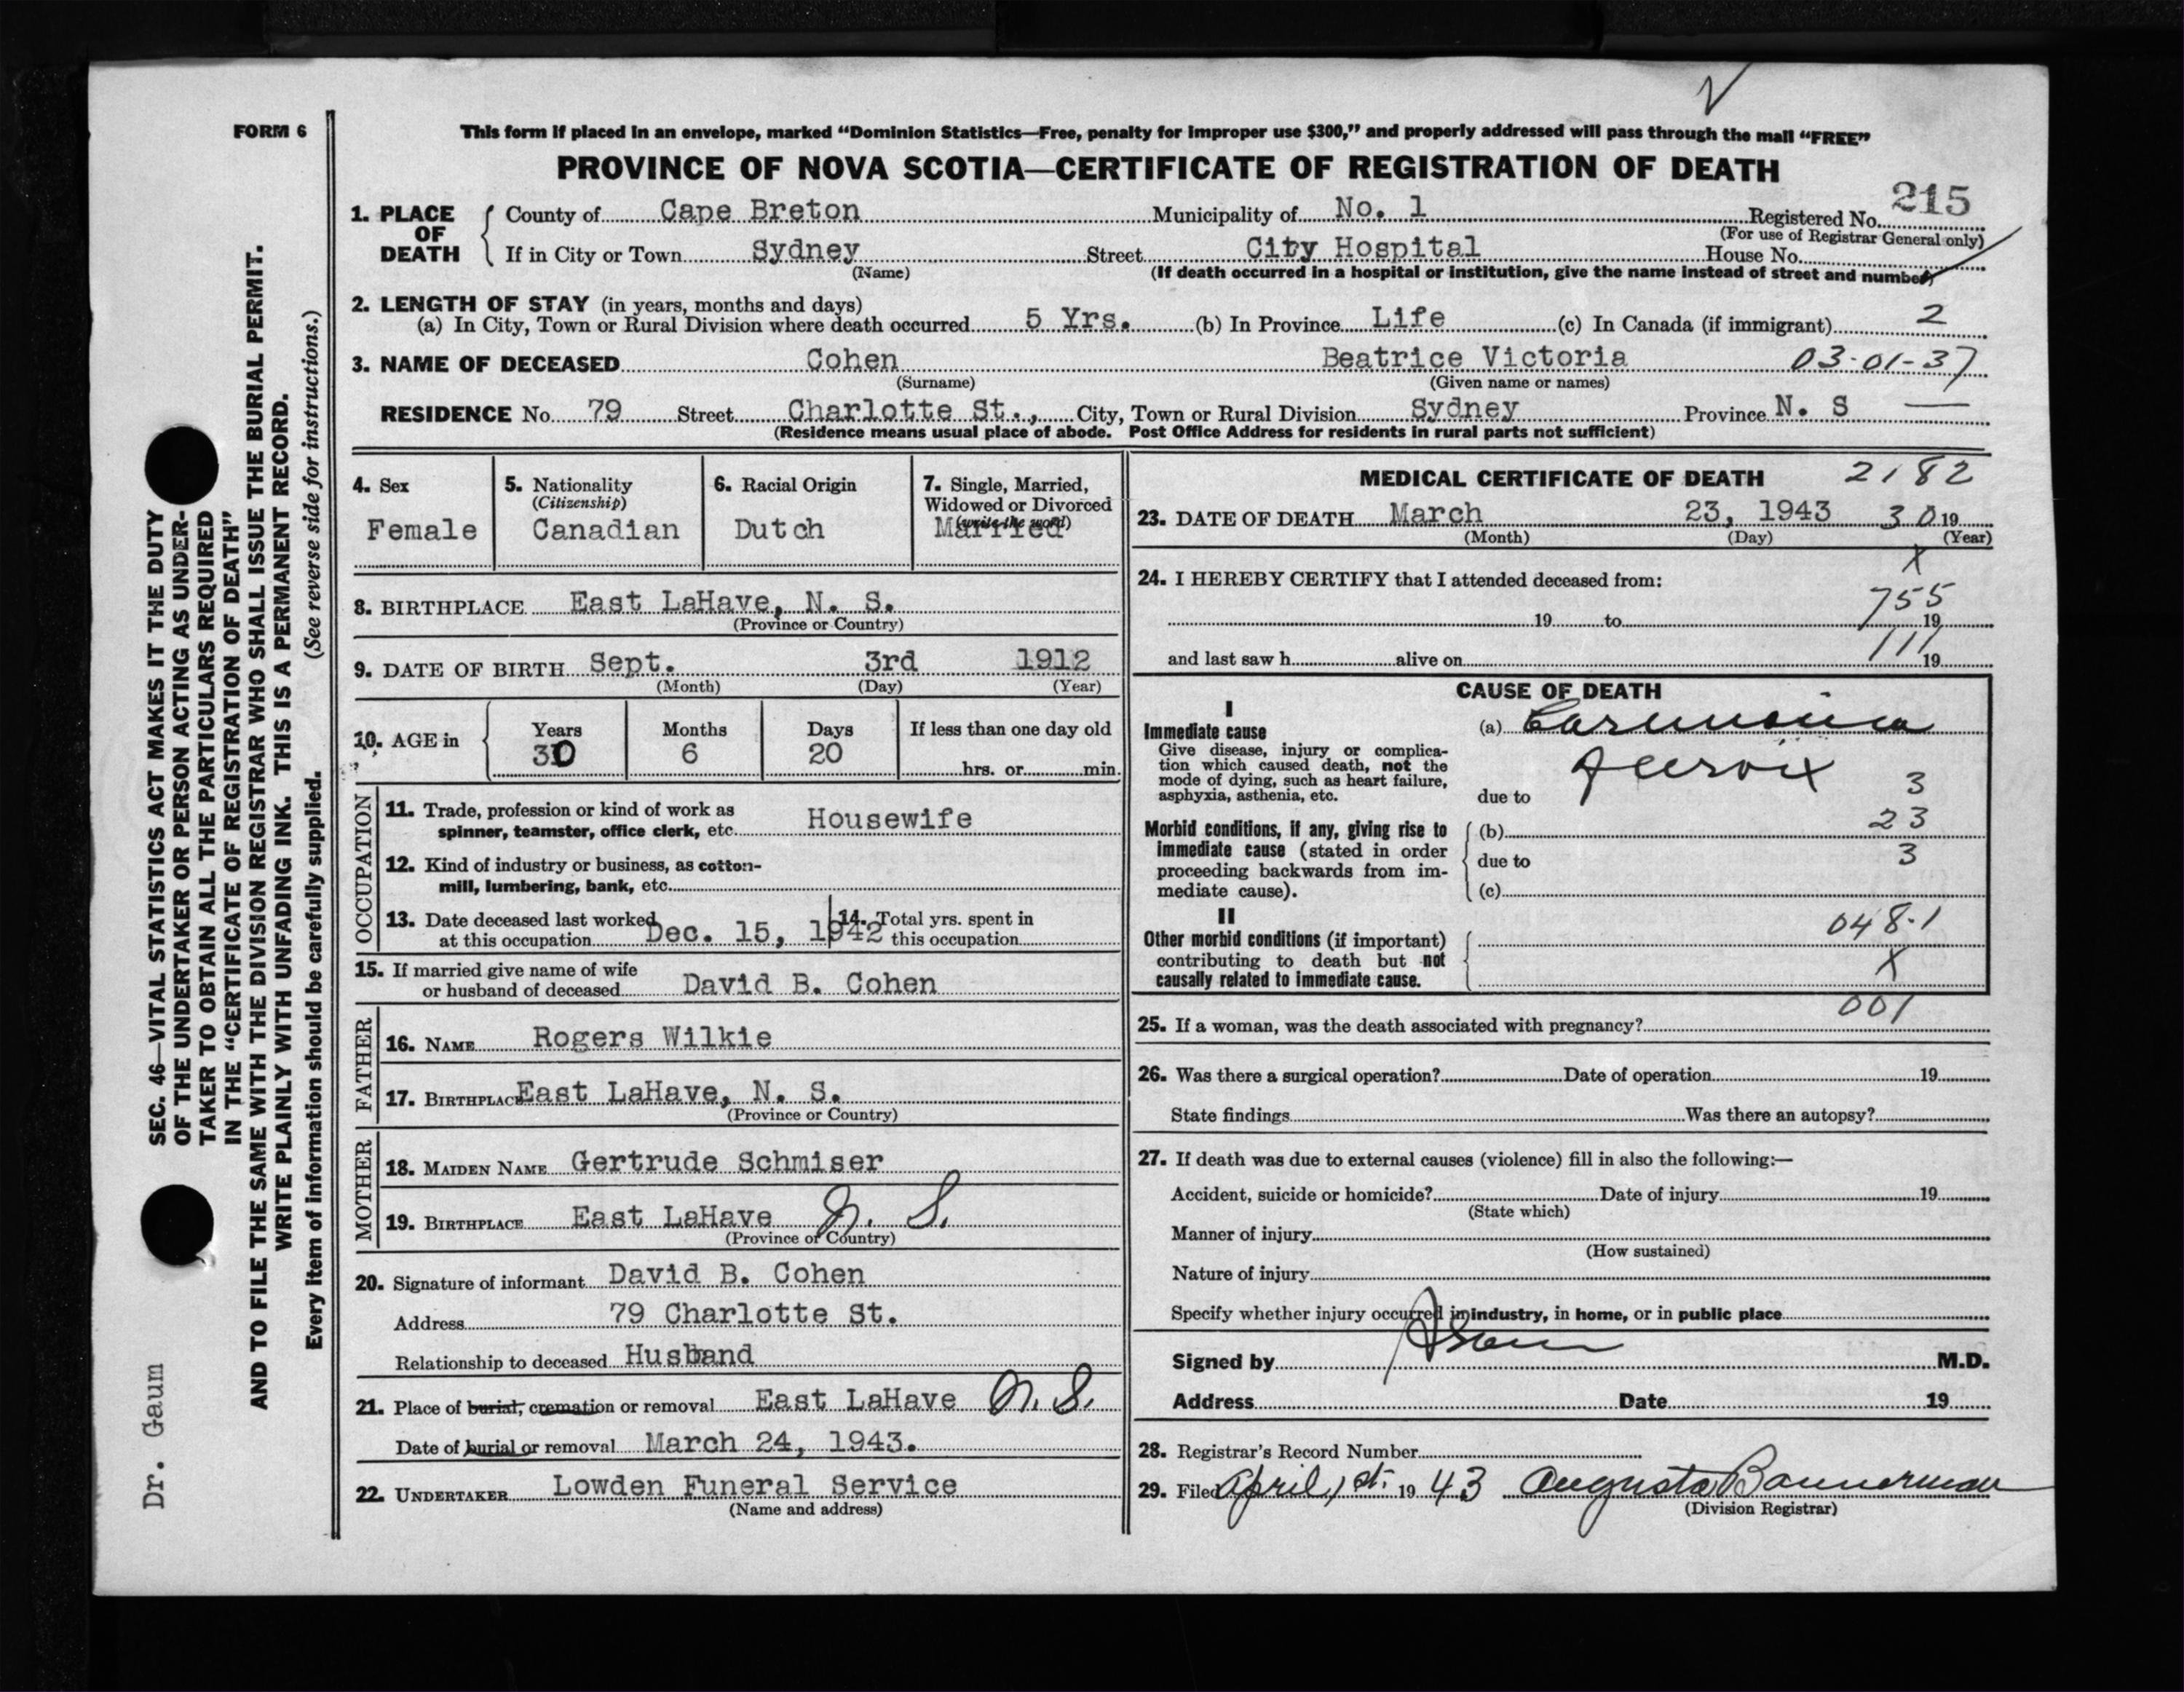 FORM 6
This form if placed in an envelope, marked “Dominion Statistics—Free, penalty for improper use $300,” and properly addressed will pass through the mail “FREE”
PROVINCE OF NOVA SCOTIA—CERTIFICATE OF REGISTRATION OF DEATH
215
1. PLACE OF DEATH
County of Cape Breton Municipality of No. 1 Registered No.
(For use of Registrar General only)
If in City or Town Sydney Street City Hospital House No.
(Name) (If death occurred in a hospital or institution, give the name instead of street and number)
2. LENGTH OF STAY (in years, months and days)
(a) In City, Town or Rural Division where death occurred 5 Yrs. (b) In Province Life (c) In Canada (if immigrant) 2
3. NAME OF DECEASED Cohen Beatrice Victoria 03-01-37
(Surname) (Given name or names)
RESIDENCE No. 79 Street Charlotte St., City, Town or Rural Division Sydney Province N. S —
(Residence means usual place of abode. Post Office Address for residents in rural parts not sufficient)
4. Sex
Female
5. Nationality
(Citizenship)
Canadian
6. Racial Origin
Dutch
7. Single, Married,
Widowed or Divorced
(write the word)
Married
8. BIRTHPLACE East LaHave, N. S.
(Province or Country)
9. DATE OF BIRTH Sept. 3rd 1912
(Month) (Day) (Year)
10. AGE in
Years Months Days If less than one day old
30 6 20
hrs. or min.
OCCUPATION
11. Trade, profession or kind of work as
spinner, teamster, office clerk, etc. Housewife
12. Kind of industry or business, as cotton-
mill, lumbering, bank, etc.
13. Date deceased last worked
at this occupation Dec. 15, 1942
14. Total yrs. spent in
this occupation
15. If married give name of wife
or husband of deceased David B. Cohen
FATHER
16. NAME Rogers Wilkie
17. BIRTHPLACE East LaHave, N. S.
(Province or Country)
MOTHER
18. MAIDEN NAME Gertrude Schmiser
19. BIRTHPLACE East LaHave N. S.
(Province or Country)
20. Signature of informant David B. Cohen
Address 79 Charlotte St.
Relationship to deceased Husband
21. Place of burial, cremation or removal East LaHave N. S.
Date of burial or removal March 24, 1943.
22. UNDERTAKER Lowden Funeral Service
(Name and address)
MEDICAL CERTIFICATE OF DEATH 2182
23. DATE OF DEATH March 23, 1943 30 19
(Month) (Day) (Year)
X
24. I HEREBY CERTIFY that I attended deceased from:
755
19 to 19
111
and last saw h alive on 19
CAUSE OF DEATH
I
Immediate cause
Give disease, injury or complica-
tion which caused death, not the
mode of dying, such as heart failure,
asphyxia, asthenia, etc.
(a) Carcinoma
due to
3
Morbid conditions, if any, giving rise to
immediate cause (stated in order
proceeding backwards from im-
mediate cause).
(b) 23
due to 3
(c)
II
Other morbid conditions (if important)
contributing to death but not
causally related to immediate cause.
048.1
X
001
25. If a woman, was the death associated with pregnancy?
26. Was there a surgical operation? Date of operation 19
State findings Was there an autopsy?
27. If death was due to external causes (violence) fill in also the following:—
Accident, suicide or homicide? Date of injury 19
(State which)
Manner of injury
(How sustained)
Nature of injury
Specify whether injury occurred in industry, in home, or in public place
Signed by M.D.
Address Date 19
28. Registrar's Record Number
29. Filed April, 1st. 19 43 Augusta Bannerman
(Division Registrar)
SEC. 46—VITAL STATISTICS ACT MAKES IT THE DUTY
OF THE UNDERTAKER OR PERSON ACTING AS UNDER-
TAKER TO OBTAIN ALL THE PARTICULARS REQUIRED
IN THE “CERTIFICATE OF REGISTRATION OF DEATH”
AND TO FILE THE SAME WITH THE DIVISION REGISTRAR WHO SHALL ISSUE THE BURIAL PERMIT.
WRITE PLAINLY WITH UNFADING INK. THIS IS A PERMANENT RECORD.
Every item of information should be carefully supplied. (See reverse side for instructions.)
Dr. Gaum